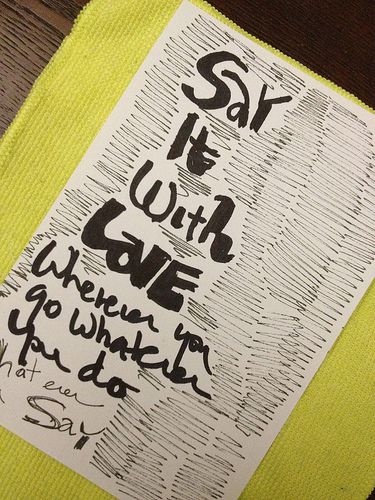 Say
It
With
LOVE
Wherever you
go Whatever
you do
hat ever
Say